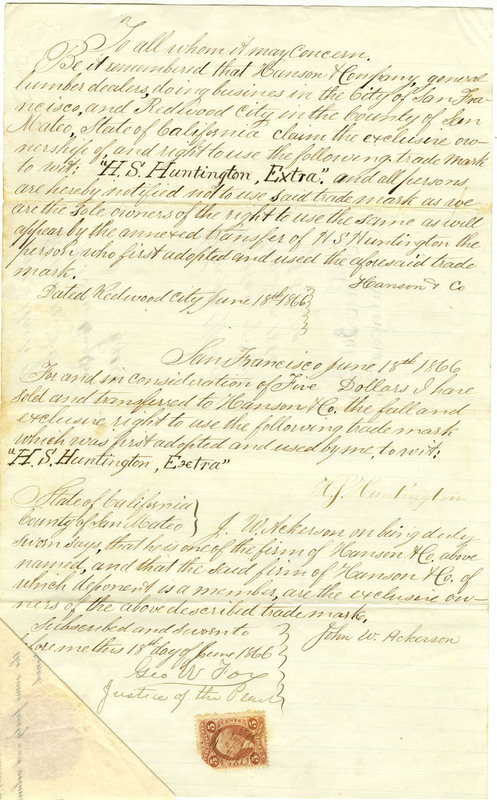 To all whom it may Concern.
Be it remembered that Hanson & Company, general
lumber dealers, doing busines in the City of San Fra-
ncisco, and Redwood City in the County of San
Mateo, State of California claim the exclusive ow-
nership of and right to use the following trade mark
to wit: "H. S. Huntington, Extra". and all persons
are hereby notified not to use said trade mark as we
are the sole owners of the right to use the same as will
appear by the annexed transfer of H. S. Huntington the
person who first adopted and used the aforesaid trade
mark. Hanson & Co
Dated Redwood City June 18th 1866
San Francisco June 18th 1866
For and in consideration of Five Dollars I have
sold and transferred to Hanson & Co. the full and
exclusive right to use the following trade mark
which was first adopted and used by me, to wit:
"H. S. Huntington, Extra"
H. S. Huntington
State of California
County of San Mateo } J. W. Ackerson on being duly
sworn says, that he is one of the firm of Hanson & Co. above
named, and that the said firm of Hanson & Co. of
which deponent is a member, are the exclusive ow-
ners of the above described trade mark.
Subscribed and sworn to John W. Ackerson
before me this 18th day of June 1866
Geo W. Fox
Justice of the Peace
5 5